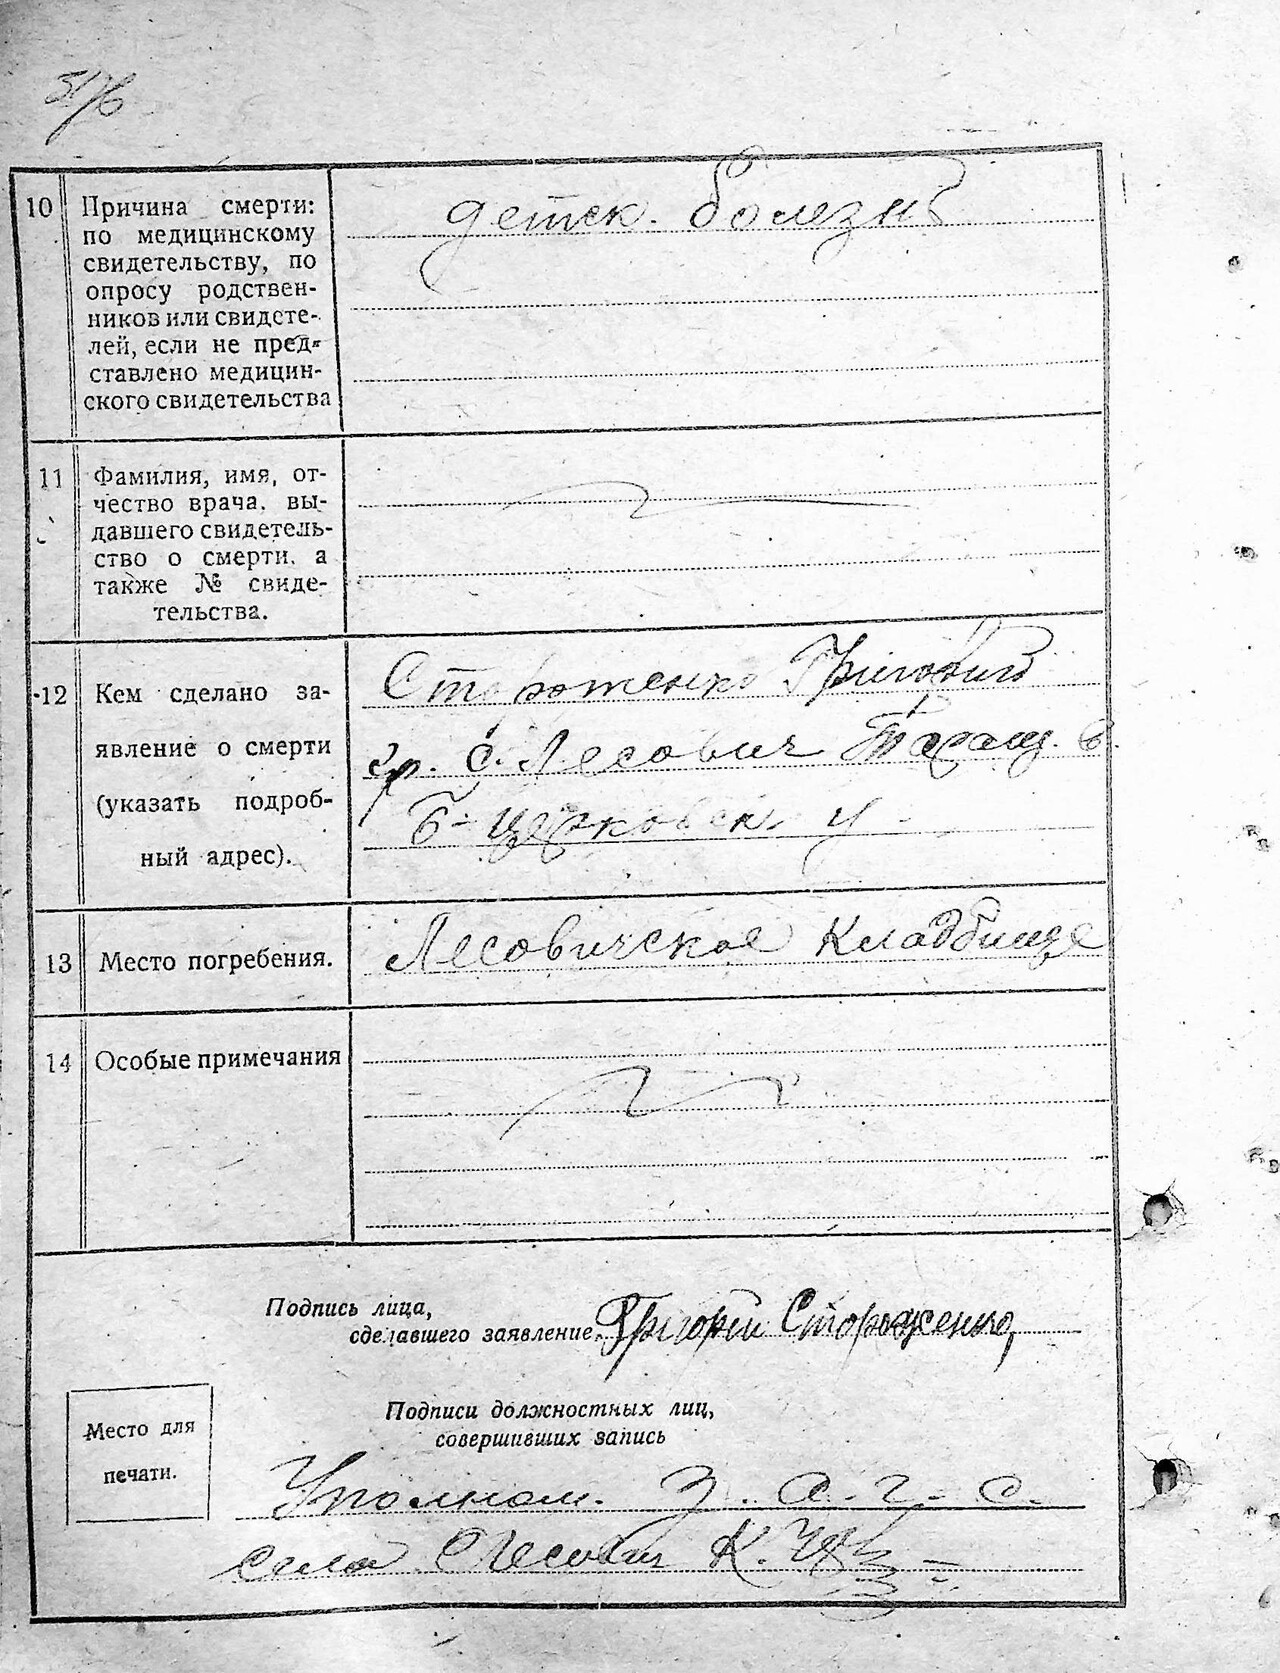 10 Причина смерти:
по медицинскому
свидетельству, по
опросу родствен-
ников или свидете-
лей, если не пред-
ставлено медицин-
ского свидетельства
детск. болезнь
11 Фамилия, имя, от-
чество врача, вы-
давшего свидетель-
ство о смерти, а
также № свиде-
тельства.
12 Кем сделано за-
явление о смерти
(указать подроб-
ный адрес).
Стороженко Григорий
гр. с. Лесович Таращ. в.
Б-церковск. у.
13 Место погребения.
Лесовичское кладбище
14 Особые примечания
Подпись лица,
сделавшего заявление, Григорій Стороженко
Подписи должностных лиц,
совершивших запись
Место для
печати.
Уполном. З.а.г.с.
села Лесович К.